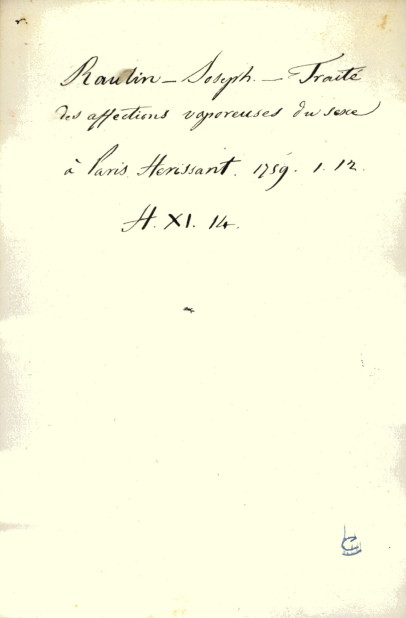 Raulin – Joseph. – Traité
des affections vaporeuses du sexe
à Paris Herissant. 1759. 1. 12.
H. XI. 14.